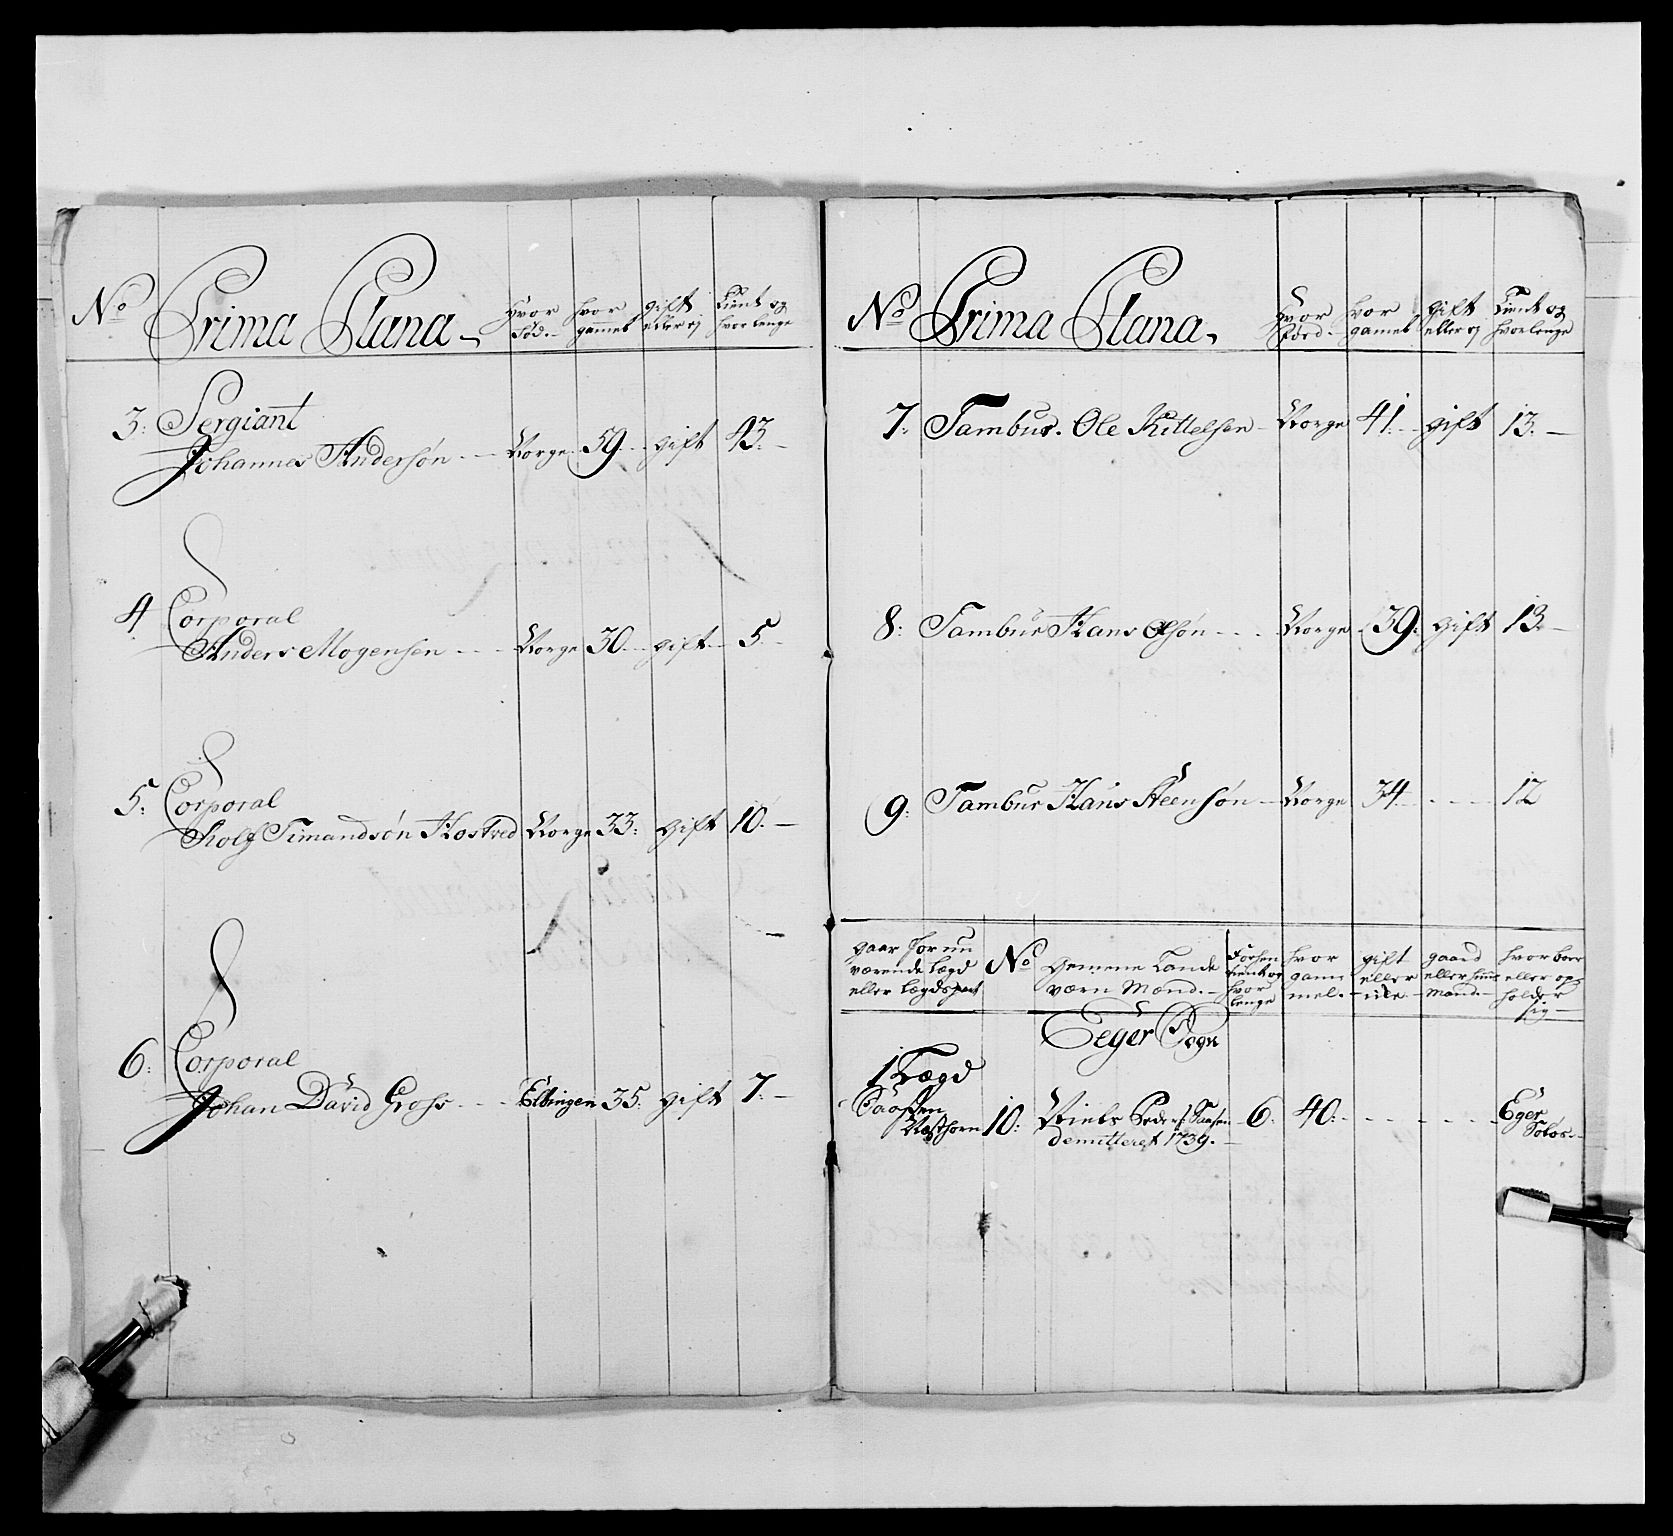 No Prima Plana
hvor fød. hvor gamel gift eller ej Tient og hvor lenge
3: Sergiant
Johannes Andersøn Norge 59 gift 43
4 Corporal
Anders Mogensen Norge 30 gift 5
5: Corporal
Rolf Timandsøn Kostved Norge 33: gift 10.
6: Corporal
Johan David Gross Elbingen 35. gift 7.
No Prima Plana
hvor hvor gamel gift eller ej Tient og hvor lenge
7. Tambur. Ole Kittelsen Norge 41. gift 13.
8: Tambur Hans Norge 39. gift 13.
9: Tambur Hans Steensøn Norge 34 12
gaar for nu værende lægd eller lægdspart
No gemene Lands værn Mænd.
tient og hvor lenge
hvor gammel. gift eller gaard eller huus mand. hvor boer eller opholder sig
Eeger Sogn
1 Lægd
10: Niels 6. 40. Eger
demitteret 1739.